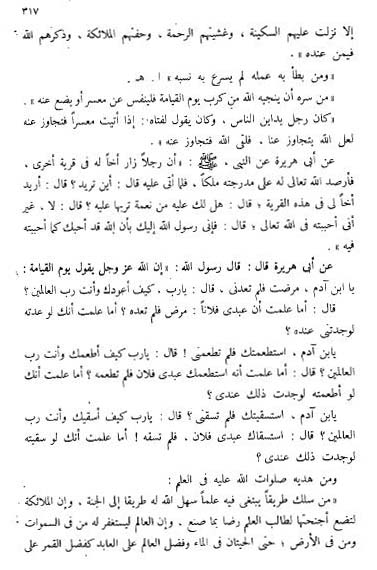 ٣١٧
إلا نزلت عليهم السكينة ، وغشيتهم الرحمة ، وحفتهم الملائكة ، وذكرهم الله
فيمن عنده » .
« ومن بطأ به عمله لم يسرع به نسبه » ا . هـ .
« من سره أن ينجيه الله من كرب يوم القيامة فلينفس عن معسر أو يضع عنه » .
« كان رجل يداين الناس ، وكان يقول لفتاه : إذا أتيت معسراً فتجاوز عنه
لعل الله يتجاوز عنا . فلقى الله فتجاوز عنه » .
عن أبى هريرة عن النبى ، ﷺ : « أن رجلاً زار أخاً له فى قرية أخرى ،
فأرصد الله تعالى له على مدرجته ملكاً ، فلما أتى عليه قال : أين تريد ؟ قال : أريد
أخاً لى فى هذه القرية ؛ قال : هل لك عليه من نعمة تربها عليه ؟ قال : لا . غير
أنى أحببته فى الله تعالى ؛ قال : فإنى رسول الله إليك بأن الله قد أحبك كما أحببته
فيه » .
عن أبى هريرة قال : قال رسول الله : « إن الله عز وجل يقول يوم القيامة :
يا ابن آدم ، مرضت فلم تعدنى ، قال : يارب . كيف أعودك وأنت رب العالمين ؟
قال : أما علمت أن عبدى فلاناً : مرض فلم تعده ؟ أما علمت أنك لو عدته
لوجدتنى عنده ؟
يابن آدم . استطعمتك فلم تطعمنى ! قال : يارب كيف أطعمك وأنت رب
العالمين ؟ قال : أما علمت أنه استطعمك عبدى فلان فلم تطعمه ؟ أما علمت أنك
لو أطعمته لوجدت ذلك عندى ؟
يابن آدم . استسقيتك فلم تسقنى ؟ قال : يارب كيف أسقيك وأنت رب
العالمين ؟ قال : استسقاك عبدى فلان . فلم تسقه ! أما علمت أنك لو سقيته
لوجدت ذلك عندى ؟
ومن هديه صلوات الله عليه فى العلم :
« من سلك طريقاً يبتغى فيه علماً سهل الله له طريقا إلى الجنة . وإن الملائكة
لتضع أجنحتها لطالب العلم رضا بما صنع . وإن العالم ليستغفر له من فى السموات
ومن فى الأرض ؛ حتى الحيتان فى الماء وفضل العالم على العابد كفضل القمر على